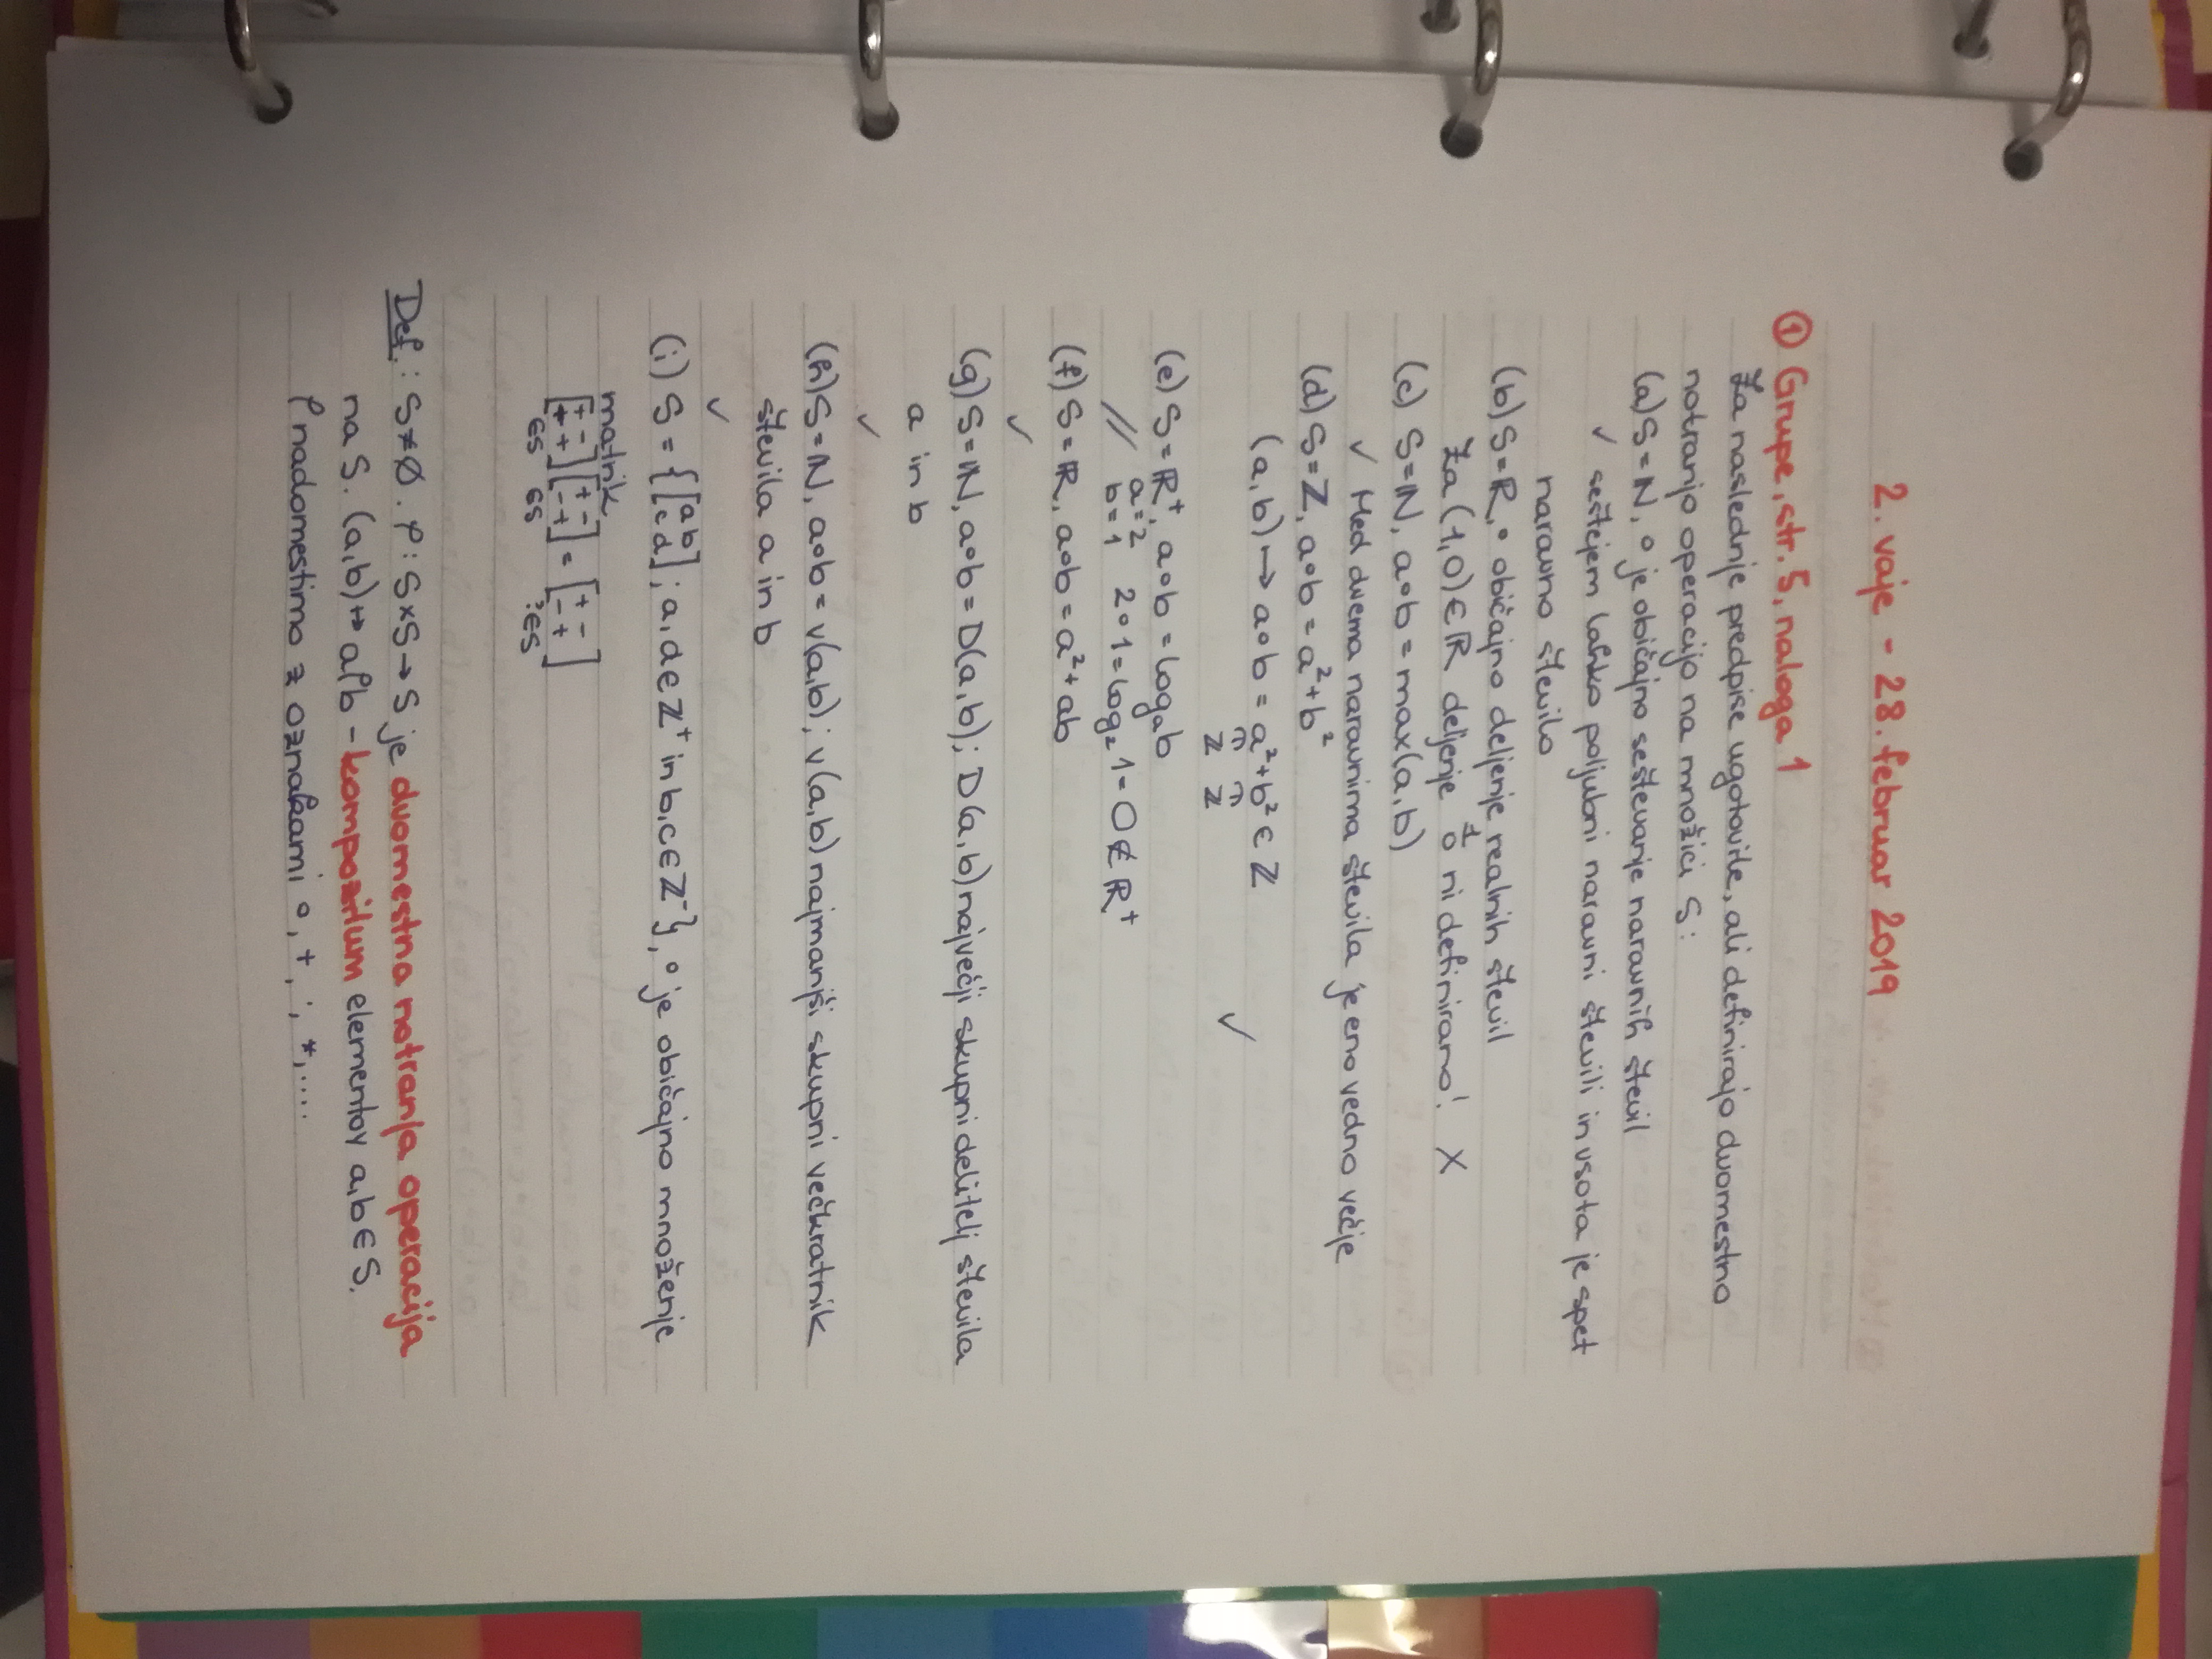 2. vaje - 28. februar 2019
① Grupe, str. 5, naloga 1
Za naslednje predpise ugotovite, ali definirajo dvomestno
notranjo operacijo na množici S:
(a) S=ℕ, ∘ je običajno seštevanje naravnih števil
✓ seštejem lahko poljubni naravni števili in vsota je spet
naravno število
(b) S=ℝ, ∘ običajno deljenje realnih števil
Za (1,0)∈ℝ deljenje 1/0 ni definirano! X
(c) S=ℕ, a∘b = max(a,b)
✓ Med dvema naravnima števila je eno vedno večje
(d) S=ℤ, a∘b = a²+b²
(a,b) ↦ a∘b = a²+b² ∈ ℤ
∈ ∈ ✓
ℤ ℤ
(e) S=ℝ⁺, a∘b = logₐb
// a=2 b=1 2∘1=log₂1=0∉ℝ⁺
(f) S=ℝ, a∘b = a²+ab
✓
(g) S=ℕ, a∘b = D(a,b); D(a,b) največji skupni delitelj števila
a in b
✓
(h) S=ℕ, a∘b = v(a,b); v(a,b) najmanjši skupni večkratnik
števila a in b
✓
(i) S = {[a b c d]; a,d∈ℤ⁺ in b,c∈ℤ⁻}, ∘ je običajno množenje
matrik
[+ - + +][+ - - +] = [+ - - +]
∈S ∈S ?∈S
Def.: S≠∅. ρ: S×S→S je dvomestna notranja operacija
na S. (a,b)↦ aρb - kompozitum elementov a,b∈S.
ρ nadomestimo z oznakami ∘, +, ·, *, ....